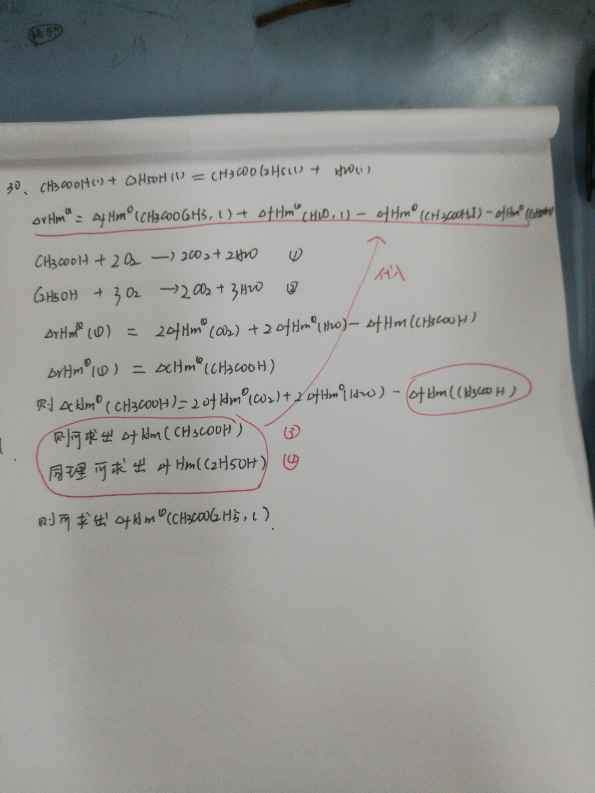 30、CH3COOH(l) + C2H5OH(l) = CH3COOC2H5(l) + H2O(l)
ΔrHmθ = ΔfHmθ(CH3COOC2H5, l) + ΔfHmθ(H2O, l) - ΔfHmθ(CH3COOH, l) - ΔfHmθ
CH3COOH + 2O2 → 2CO2 + 2H2O ①
C2H5OH + 3O2 → 2CO2 + 3H2O ②
ΔrHmθ(①) = 2ΔfHmθ(CO2) + 2ΔfHmθ(H2O) - ΔfHm(CH3COOH)
代入
ΔrHmθ(①) = ΔcHmθ(CH3COOH)
则ΔcHmθ(CH3COOH) = 2ΔfHmθ(CO2) + 2ΔfHmθ(H2O) - ΔfHm(CH3COOH)
则可求出ΔfHm(CH3COOH) ③
同理可求出ΔfHm(C2H5OH) ④
则可求出ΔfHmθ(CH3COOC2H5, l)